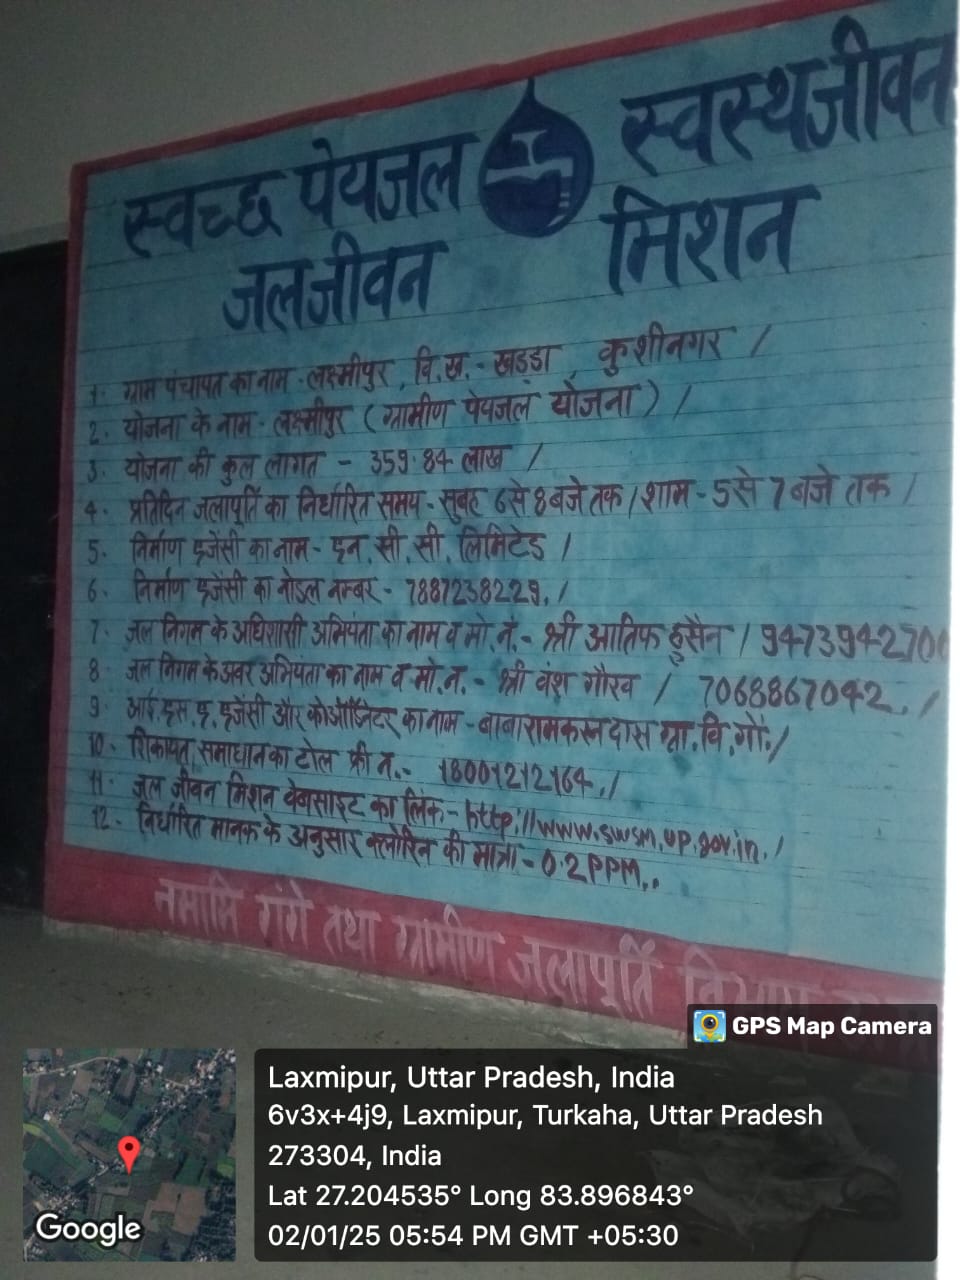 स्वच्छ पेयजल स्वस्थ जीवन
जल जीवन मिशन
1. ग्राम पंचायत का नाम - लक्ष्मीपुर, वि.ख. - खड्डा, कुशीनगर /
2. योजना के नाम - लक्ष्मीपुर (ग्रामीण पेयजल योजना) /
3. योजना की कुल लागत - 359.84 लाख /
4. प्रतिदिन जलापूर्ति का निर्धारित समय - सुबह 6 से 8 बजे तक / शाम - 5 से 7 बजे तक /
5. निर्माण एजेंसी का नाम - एन. सी. सी. लिमिटेड /
6. निर्माण एजेंसी का नोडल नम्बर - 7887238229. /
7. जल निगम के अधिशासी अभियंता का नाम व मो.न. - श्री आतिफ हुसैन / 947394270
8. जल निगम के अवर अभियंता का नाम व मो.न. - श्री वंश गौरव / 7068867042. /
9. आई.एस.ए. एजेंसी और कोऑर्डिनेटर का नाम - बाबा रामकरन दास ग्रा.वि.गो. /
10. शिकायत समाधान का टोल फ्री न. - 18001212164. /
11. जल जीवन मिशन वेबसाइट का लिंक - http://www.swsm.up.gov.in. /
12. निर्धारित मानक के अनुसार क्लोरिन की मात्रा - 0.2 PPM..
नमामि गंगे तथा ग्रामीण जलापूर्ति विभाग
GPS Map Camera
Laxmipur, Uttar Pradesh, India
6v3x+4j9, Laxmipur, Turkaha, Uttar Pradesh
273304, India
Lat 27.204535° Long 83.896843°
02/01/25 05:54 PM GMT +05:30
Google